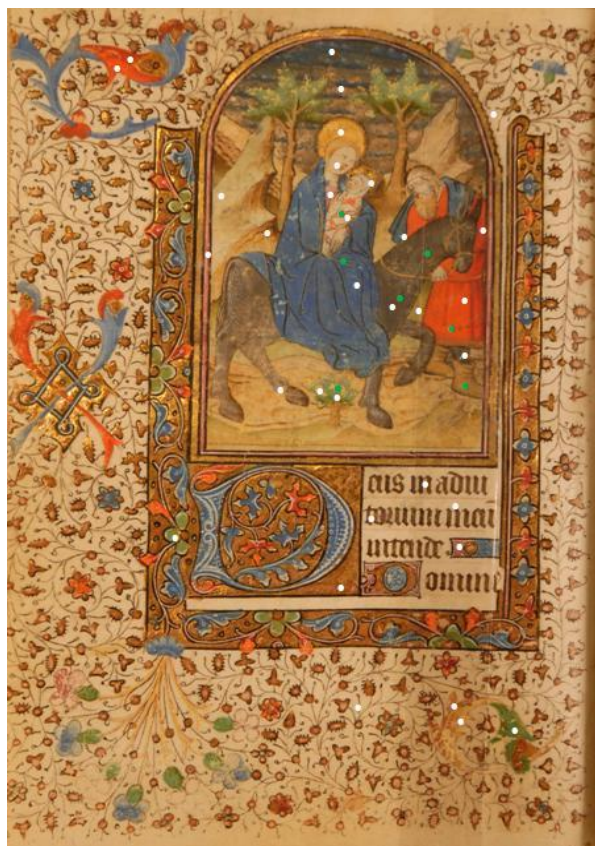 Deus in adiu
torium meu
intende.
Domine